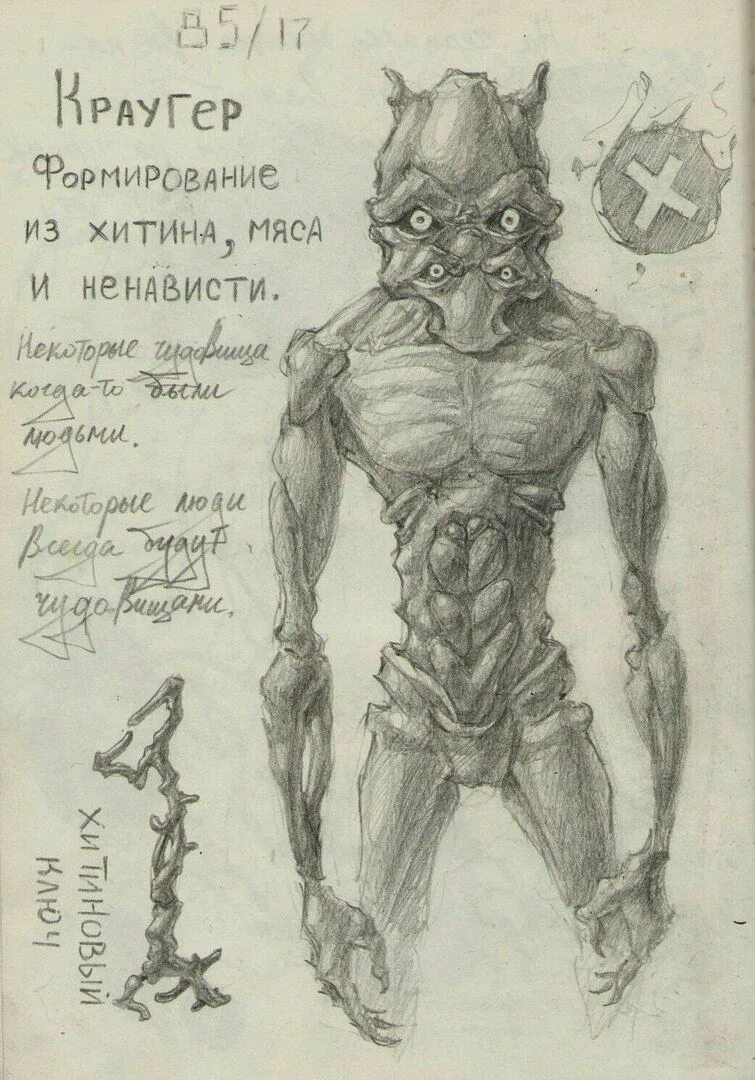 85/17
Краугер
Формирование
из хитина, мяса
и ненависти.
Некоторые чудовища
когда-то были
людьми.
Некоторые люди
Всегда будут
чудовищами.
хитиновый
ключ